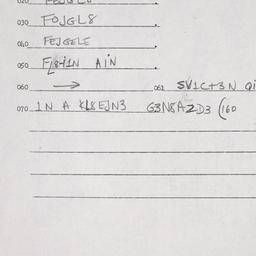 030 FOJGL8
040 FEJGELE
050 AIN
060 → 061 SV1C+3N
070 1N A KL8EJN3 G3N8AZD3 (160